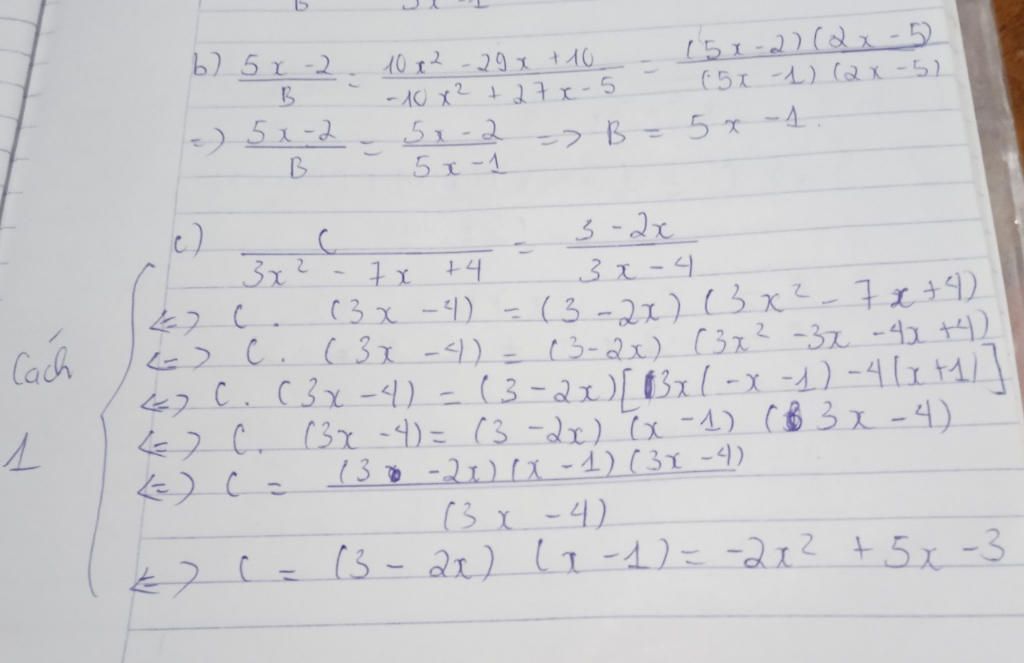 b) (5x - 2)/B = (10x² - 29x + 10)/(-10x² + 27x - 5) = ((5x - 2)(2x - 5))/((5x - 1)(2x - 5))
=> (5x - 2)/B = (5x - 2)/(5x - 1) => B = 5x - 1.
c) C/(3x² - 7x + 4) = (3 - 2x)/(3x - 4)
<=> C. (3x - 4) = (3 - 2x) (3x² - 7x + 4)
<=> C. (3x - 4) = (3 - 2x) (3x² - 3x - 4x + 4)
Cách 1
<=> C. (3x - 4) = (3 - 2x) [3x(-x - 1) - 4(x + 1)]
<=> C. (3x - 4) = (3 - 2x) (x - 1) (3x - 4)
<=> C = ((3 - 2x)(x - 1)(3x - 4))/(3x - 4)
<=> C = (3 - 2x) (x - 1) = -2x² + 5x - 3